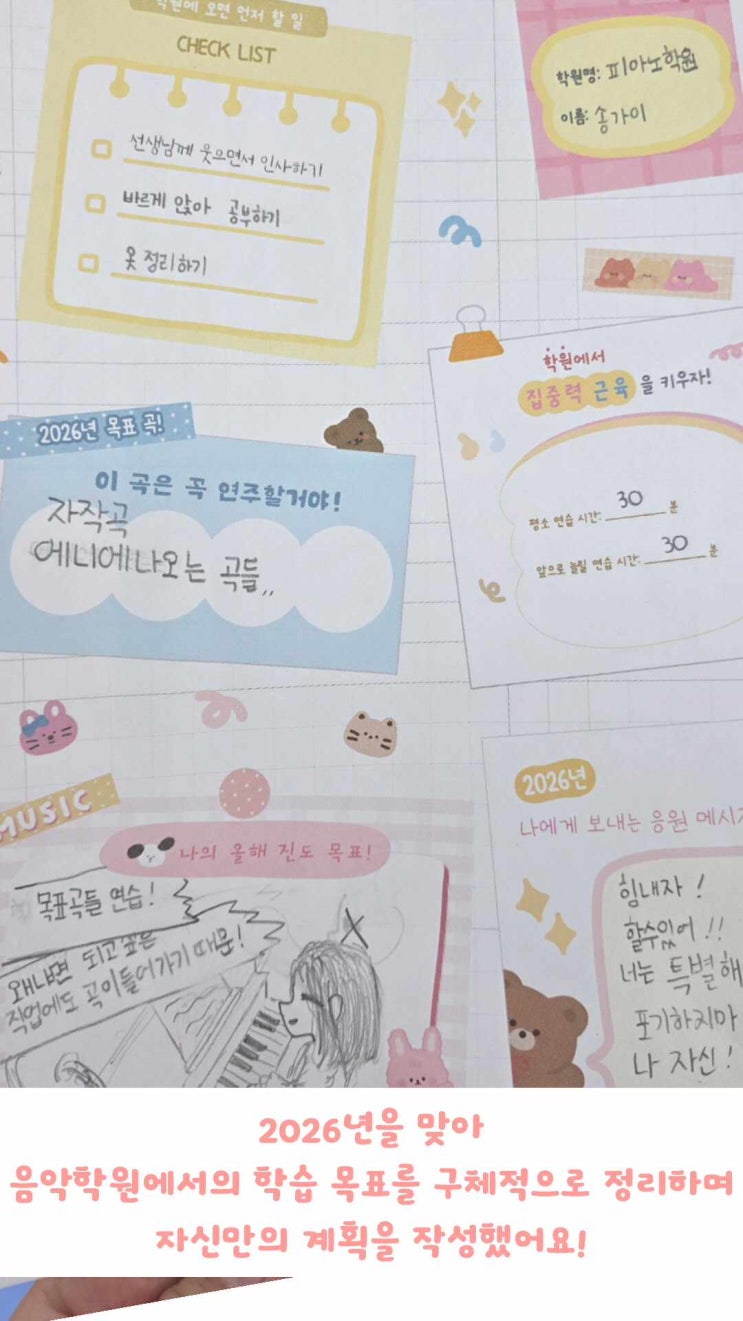 학원에 오면 먼저 할 일
CHECK LIST
선생님께 웃으면서 인사하기
바르게 앉아 공부하기
옷 정리하기
학원명: 피아노학원
이름: 송가이
학원에서
집중력 근육을 키우자!
평소 연습 시간: 30 분
앞으로 늘릴 연습 시간: 30 분
2026년 목표 곡!
이 곡은 꼭 연주할거야!
자작곡
에니에나오는 곡들,,
MUSIC
나의 올해 진도 목표!
목표곡들 연습!
왜냐면 되고싶은
직업에도 곡이들어가기 때문!
2026년
나에게 보내는 응원 메시지
힘내자!
할수있어!!
너는 특별해
포기하지마
나 자신!
2026년을 맞아
음악학원에서의 학습 목표를 구체적으로 정리하며
자신만의 계획을 작성했어요!